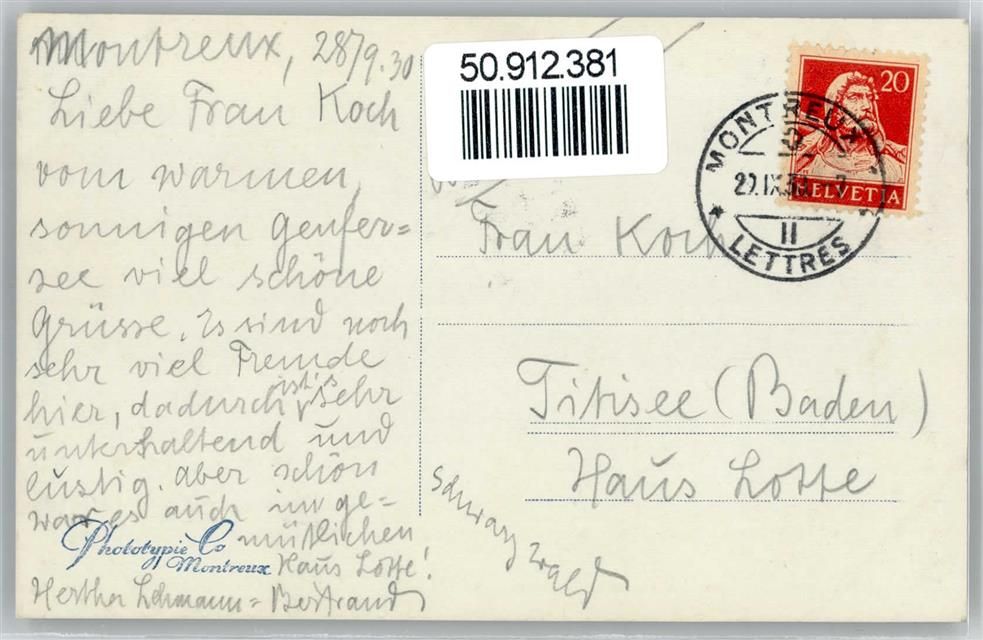 Montreux, 28/9.30
Liebe Frau Koch
vom warmen,
sonnigen Genfer=
see viel schöne
Grüsse. Es sind noch
sehr viel Fremde
hier, dadurch ist's sehr
unterhaltend und
lustig. Aber schön
war es auch im ge=
mütlichen
Haus Lotte!
Hertha Lehmann=Bertrand
Phototypie Co
Montreux
50.912.381
20
HELVETIA
MONTREUX
29.IX.30
II
LETTRES
Frau Koch
Titisee (Baden)
Haus Lotte
Schwarzwald